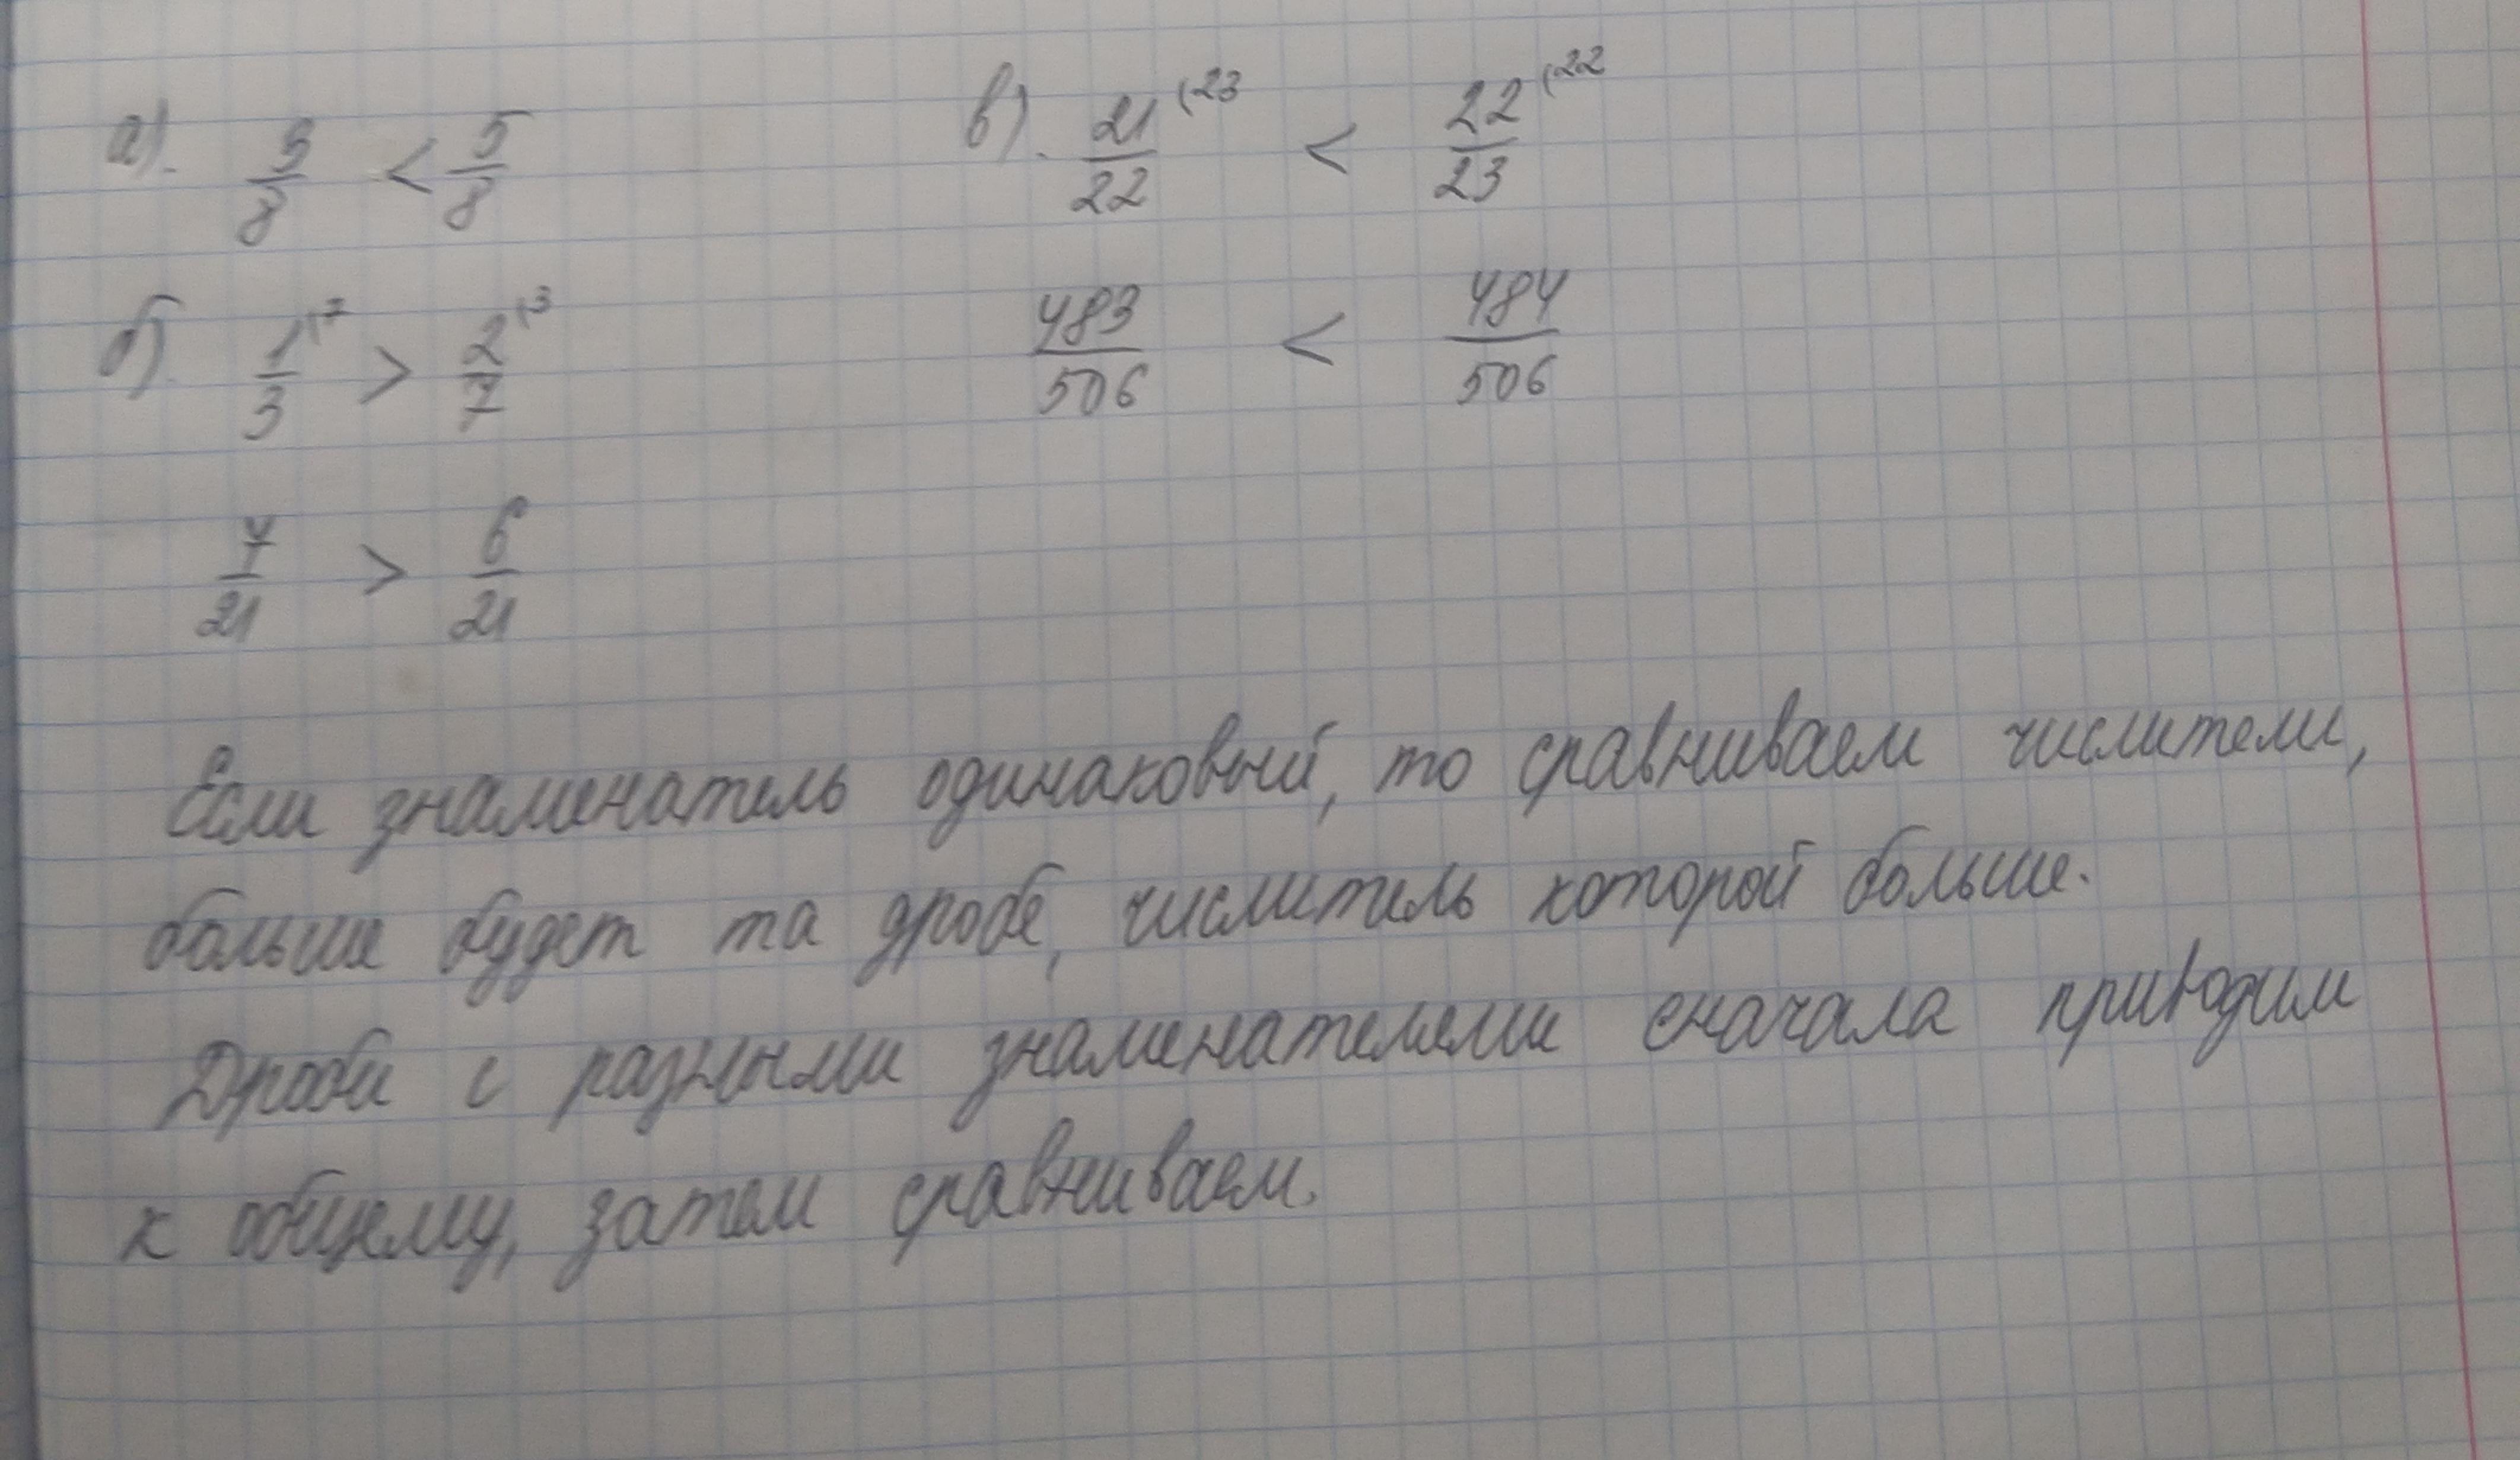 а). 3/8 < 5/8
б). 1/3 (7 > 2/7 (3
7/21 > 6/21
в). 21/22 (23 < 22/23 (22
483/506 < 484/506
Если знаменатель одинаковый, то сравниваем числители,
больше будет та дробь, числитель которой больше.
Дроби с разными знаменателями сначала приводим
к общему, затем сравниваем.